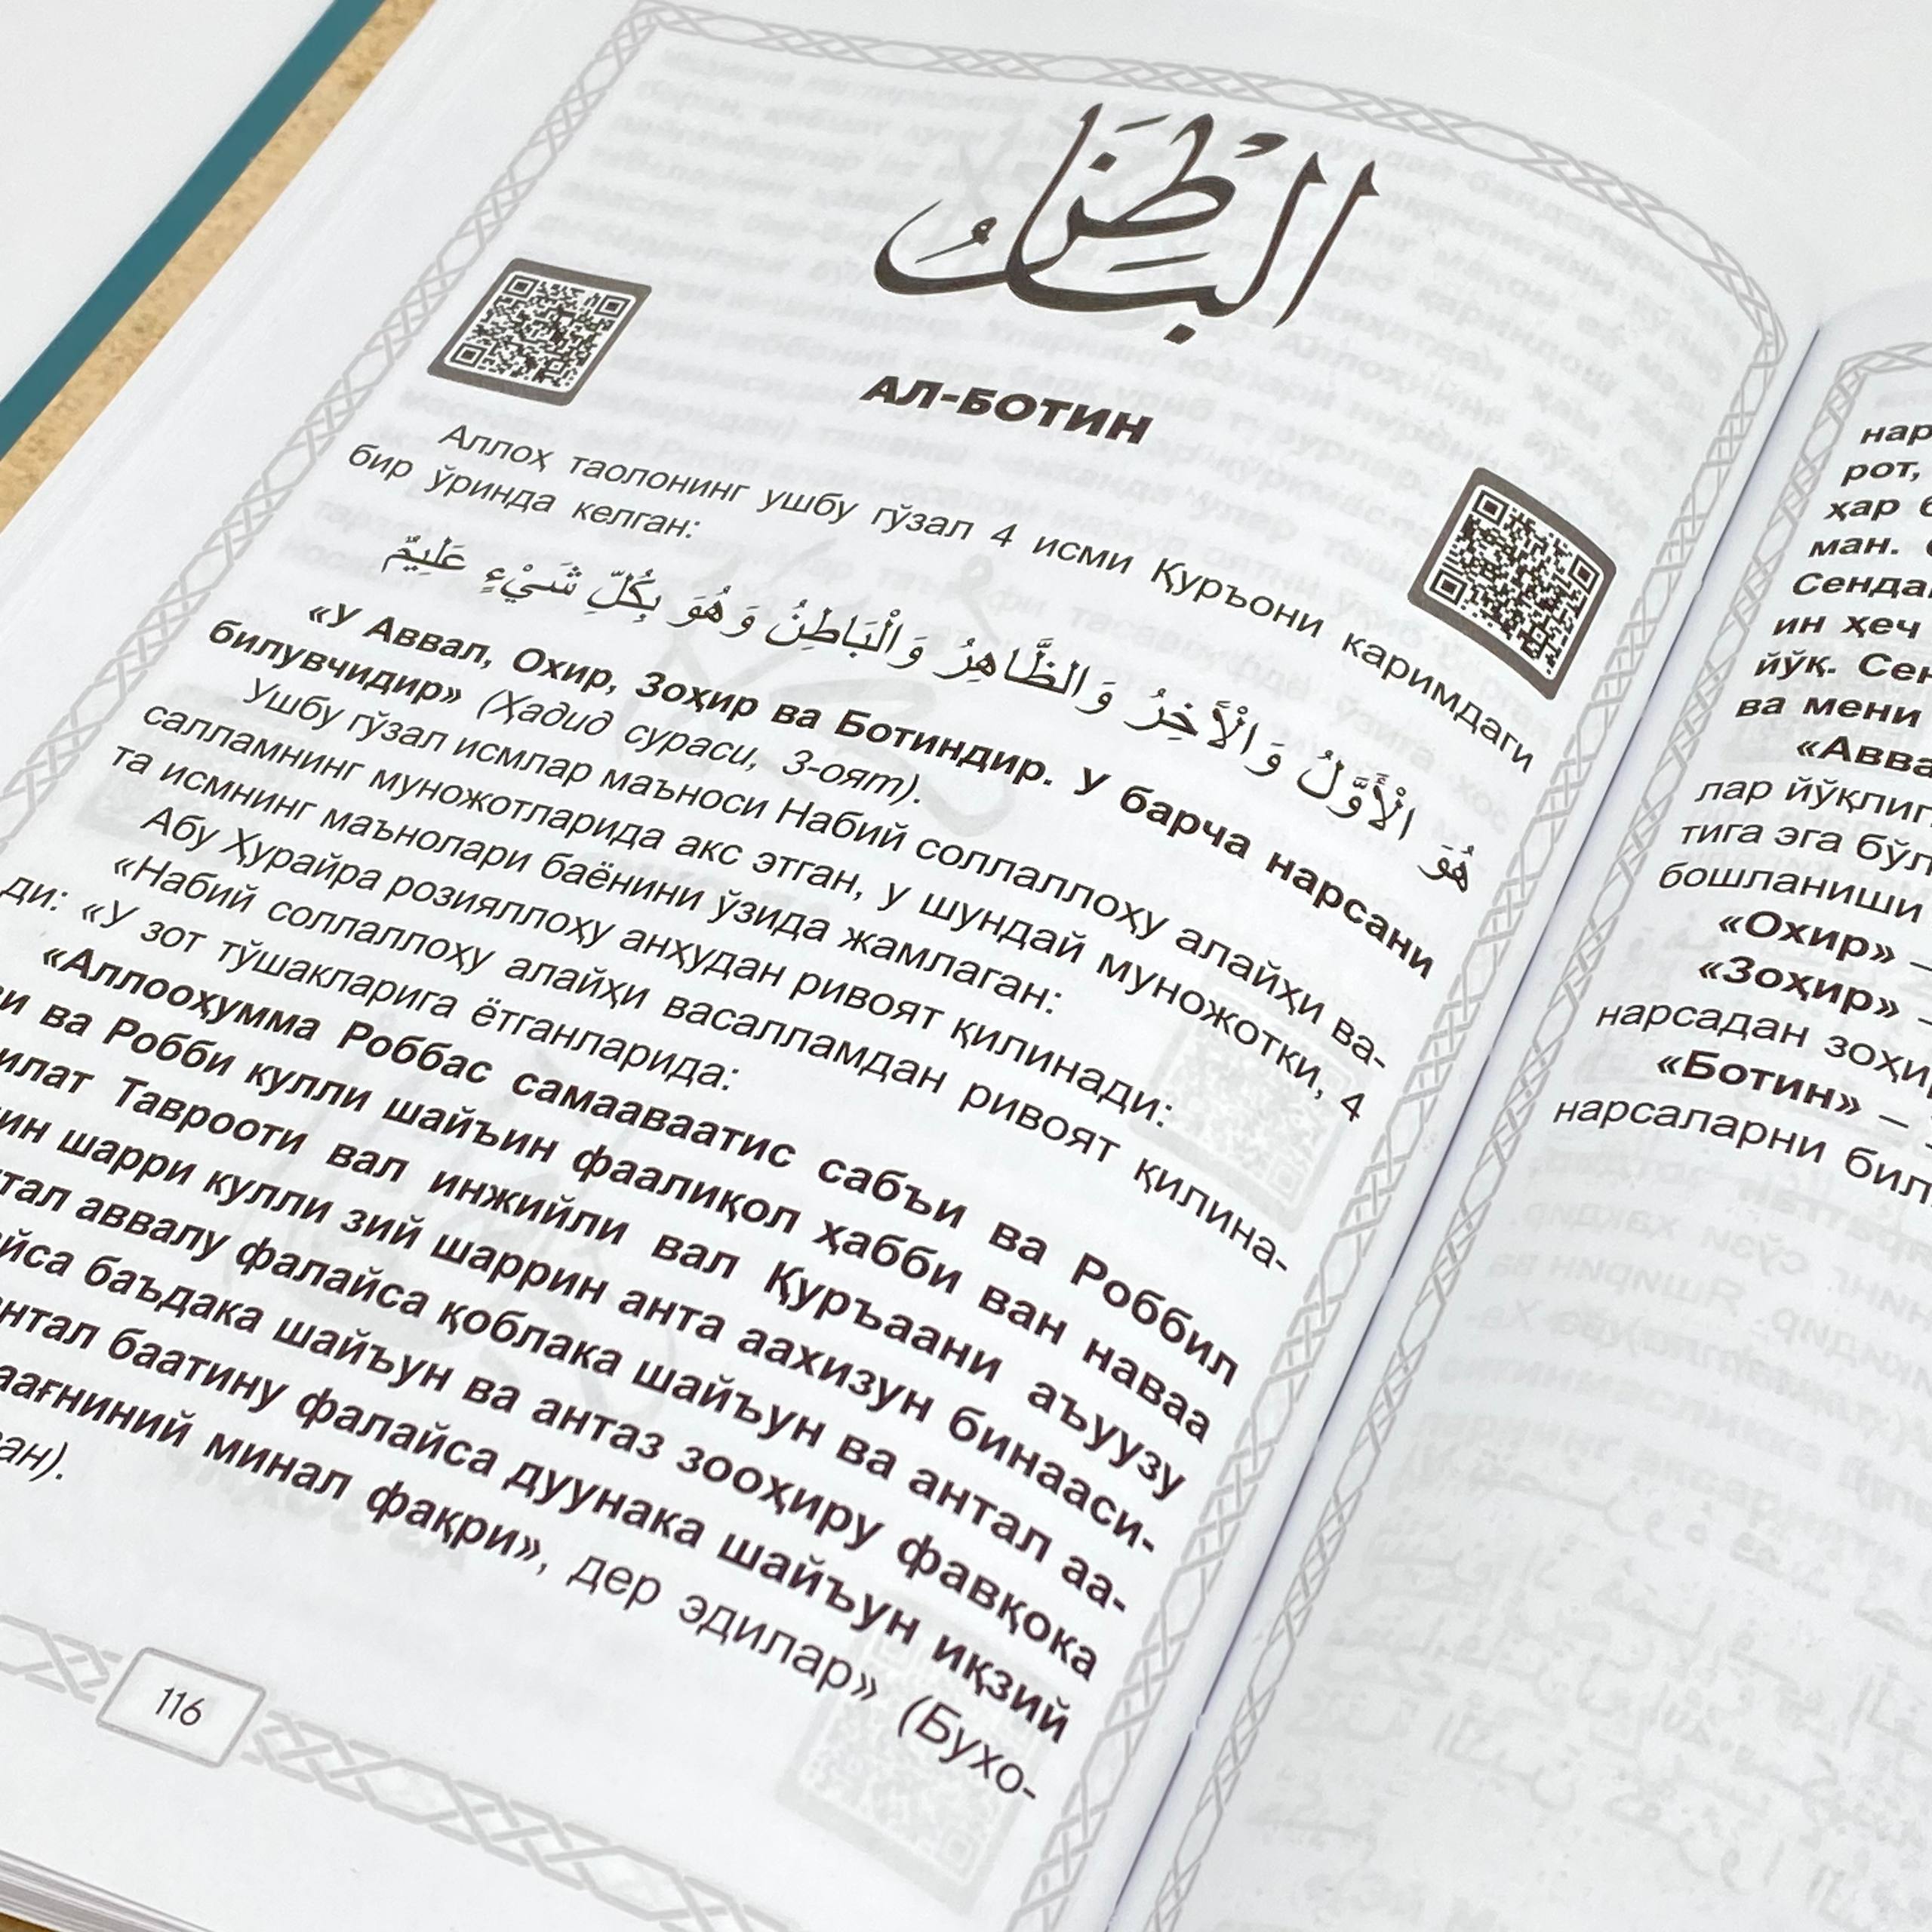 الْبَاطِنُ
АЛ-БОТИН
Аллоҳ таолонинг ушбу гўзал 4 исми Қуръони каримдаги
бир ўринда келган:
هُوَ الْأَوَّلُ وَالْآخِرُ وَالظَّاهِرُ وَالْبَاطِنُ وَهُوَ بِكُلِّ شَيْءٍ عَلِيمٌ
«У Аввал, Охир, Зоҳир ва Ботиндир. У барча нарсани
билувчидир» (Ҳадид сураси, 3-оят).
Ушбу гўзал исмлар маъноси Набий соллаллоҳу алайҳи ва-
салламнинг муножотларида акс этган, у шундай муножотки, 4
та исмнинг маънолари баёнини ўзида жамлаган:
Абу Ҳурайра розияллоҳу анҳудан ривоят қилинади:
«Набий соллаллоҳу алайҳи васалламдан ривоят қилина-
ди: «У зот тўшакларига ётганларида:
«Аллооҳумма Роббас самааваатис сабъи ва Роббил
ва Робби кулли шайъин фаалиқол ҳабби ван наваа
Таврооти вал инжийли вал Қуръаани аъуузу
шарри кулли зий шаррин анта аахизун бинааси-
аввалу фалайса қоблака шайъун ва антал аа-
баъдака шайъун ва антаз зооҳиру фавқока
баатину фалайса дуунака шайъун иқзий
минал фақри», дер эдилар» (Бухо-
116
нар
рот,
ҳар
ман.
Сенда
ин ҳеч
йўқ. Сен
ва мени
«Авва
лар йўқлиг
тига эга бўл
бошланиши
«Охир» –
«Зоҳир» –
нарсадан зоҳи
«Ботин» –
нарсаларни бил